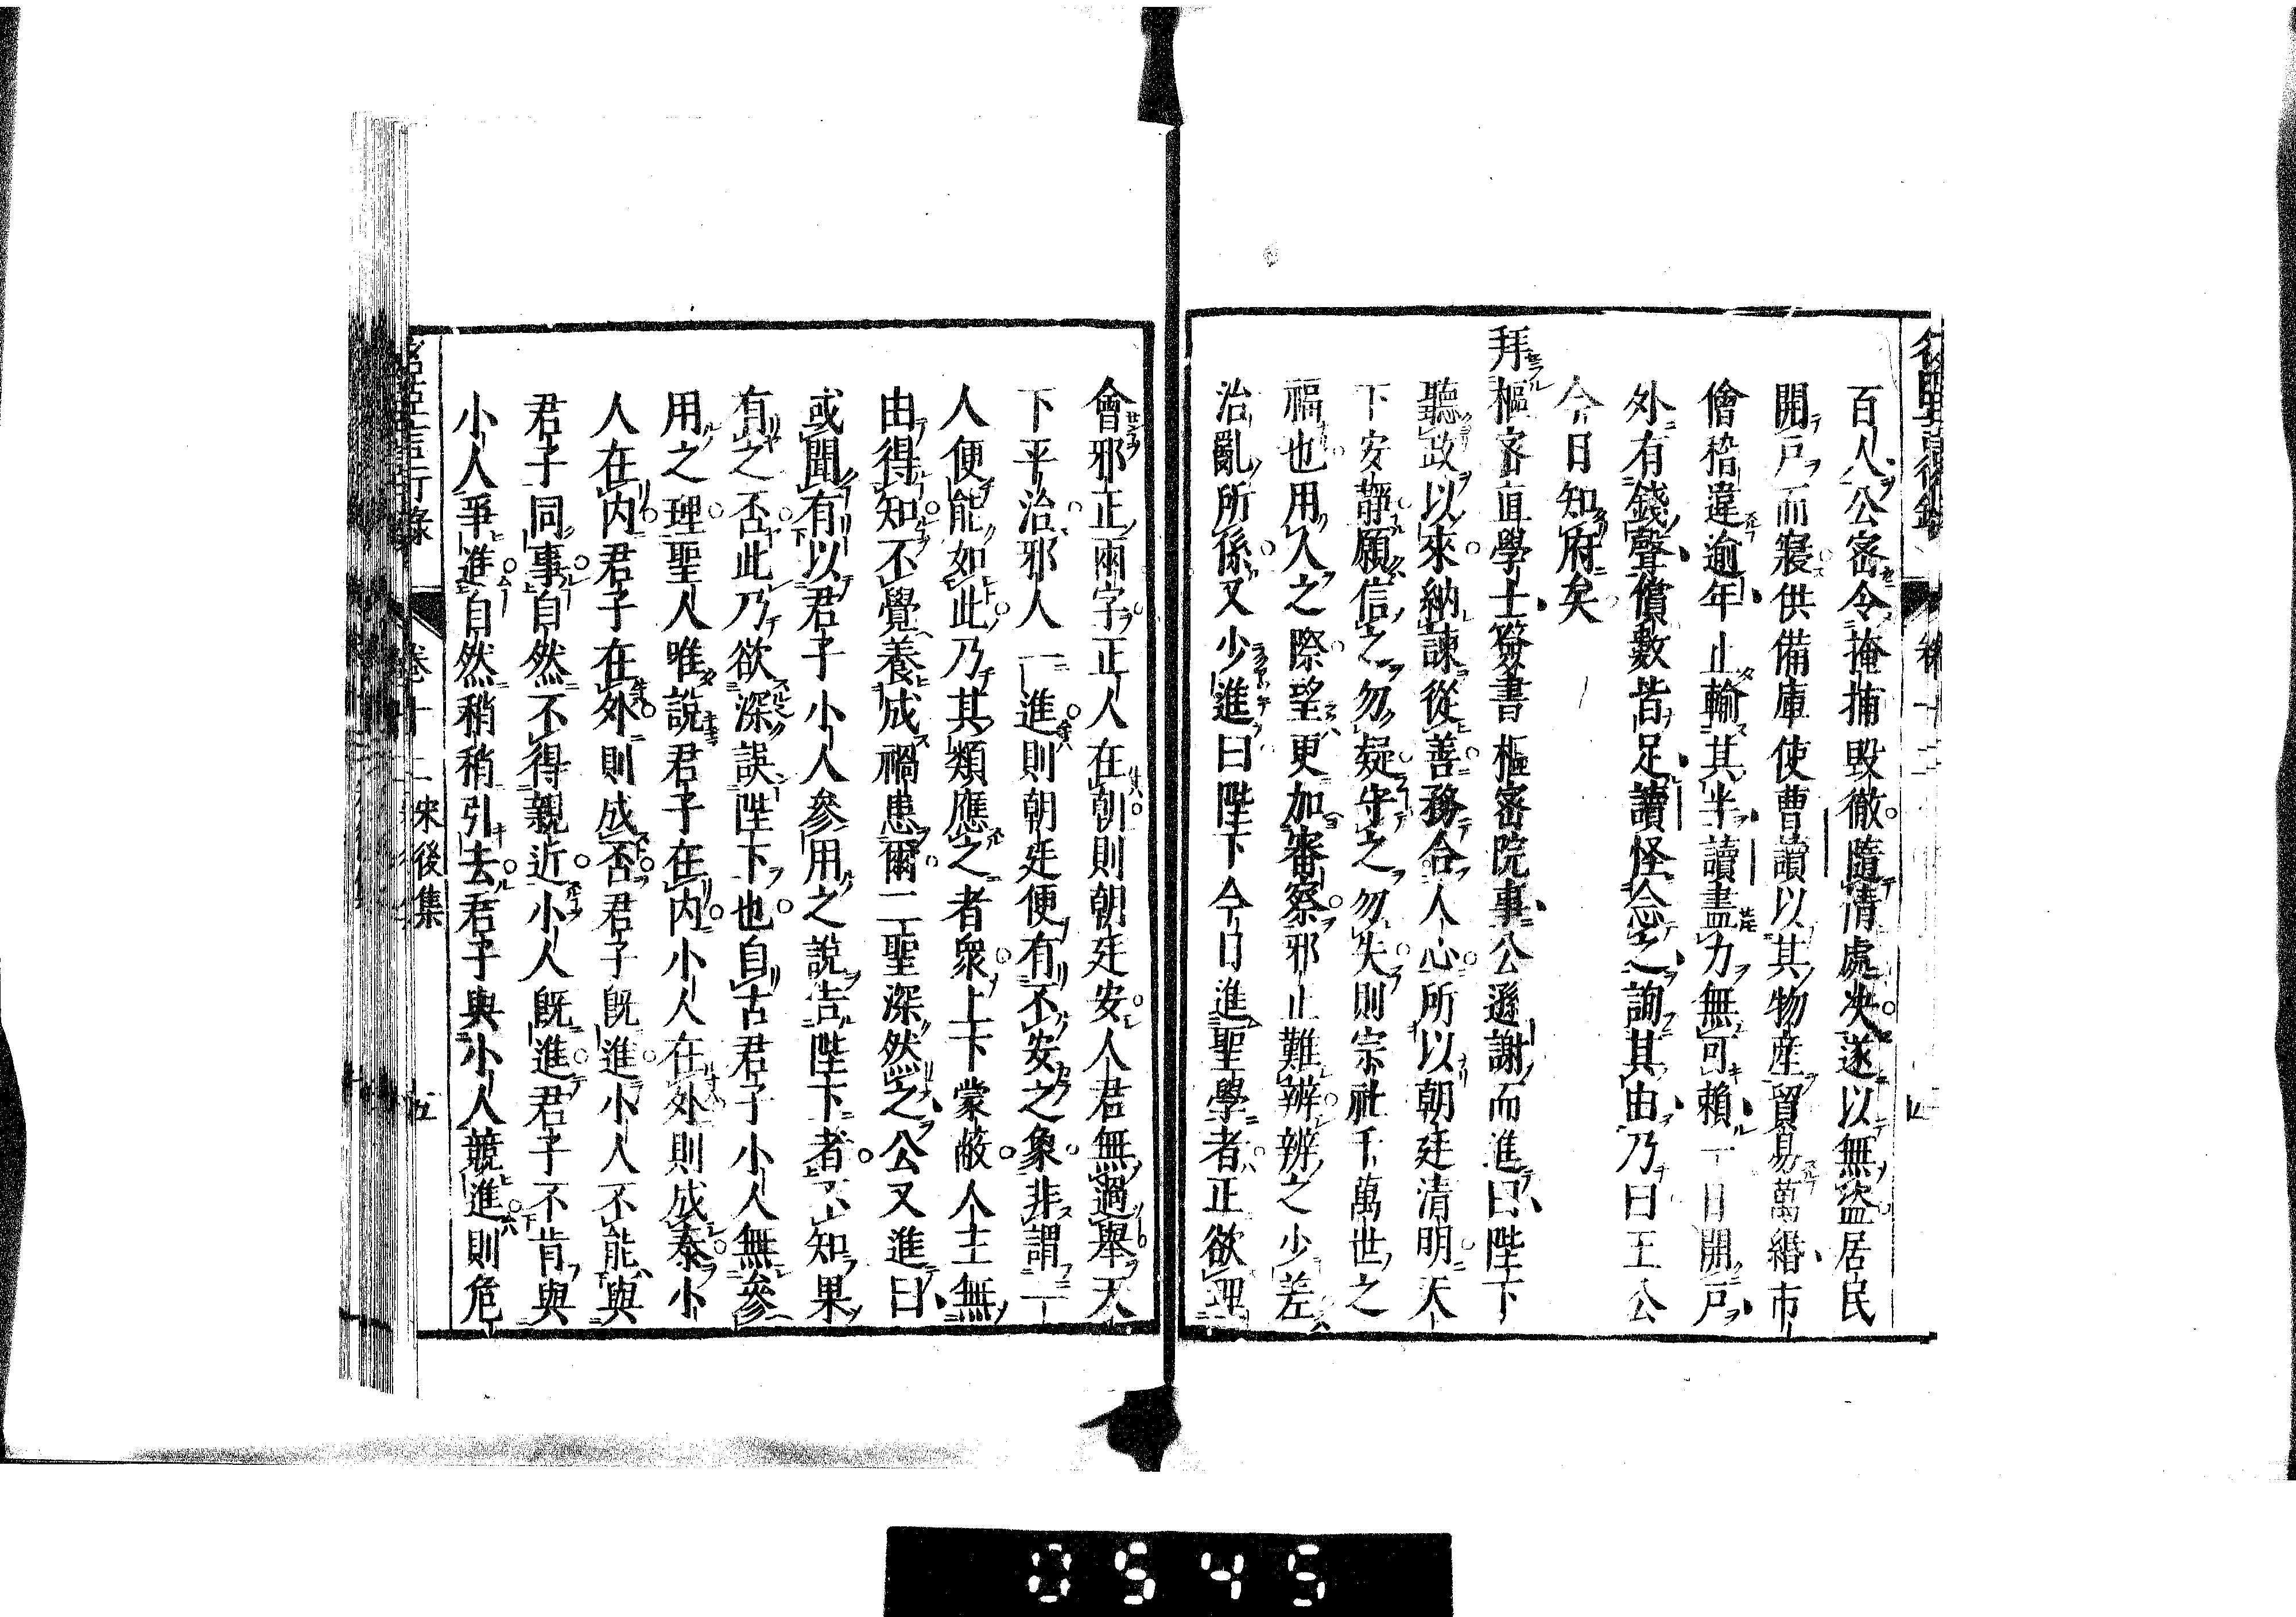 百人公密令掩捕毀徹隨情處决遂以無盜居民
開戸而寢供備庫使曹讀以其物産貿易萬緡市
儈稽違逾年止輸其半讀盡力無可賴一日開戸
外有錢聲償數皆足讀怪念之詢其由乃曰王公
今日知府矣
拜樞密直學士簽書樞密院事公遜謝而進曰陛下
聽政以來納諫從善務合人心所以朝廷清明天
下安靜願信之勿疑守之勿失則宗社千萬世之
福也用人之際望更加審察邪正難辨辨之少差
治亂所係又少進曰陛下今日進聖學者正欲理
會邪正兩字正人在朝則朝廷安人君無過舉天
下平治邪人一進則朝廷便有不安之象非謂一
人便能如此乃其類應之者衆上下蒙蔽人主無
由得知不覺養成禍患爾二聖深然之公又進曰
或聞有以君子小人參用之說告陛下者不知果
有之否此乃欲深誤陛下也自古君子小人無參
用之理聖人唯說君子在內小人在外則成泰小
人在內君子在外則成否君子既進小人不能與
君子同事自然不得親近小人既進君子不肯與
小人爭進自然稍稍引去君子與小人競進則危
名臣言行錄 卷十二 宋後集 五
0545